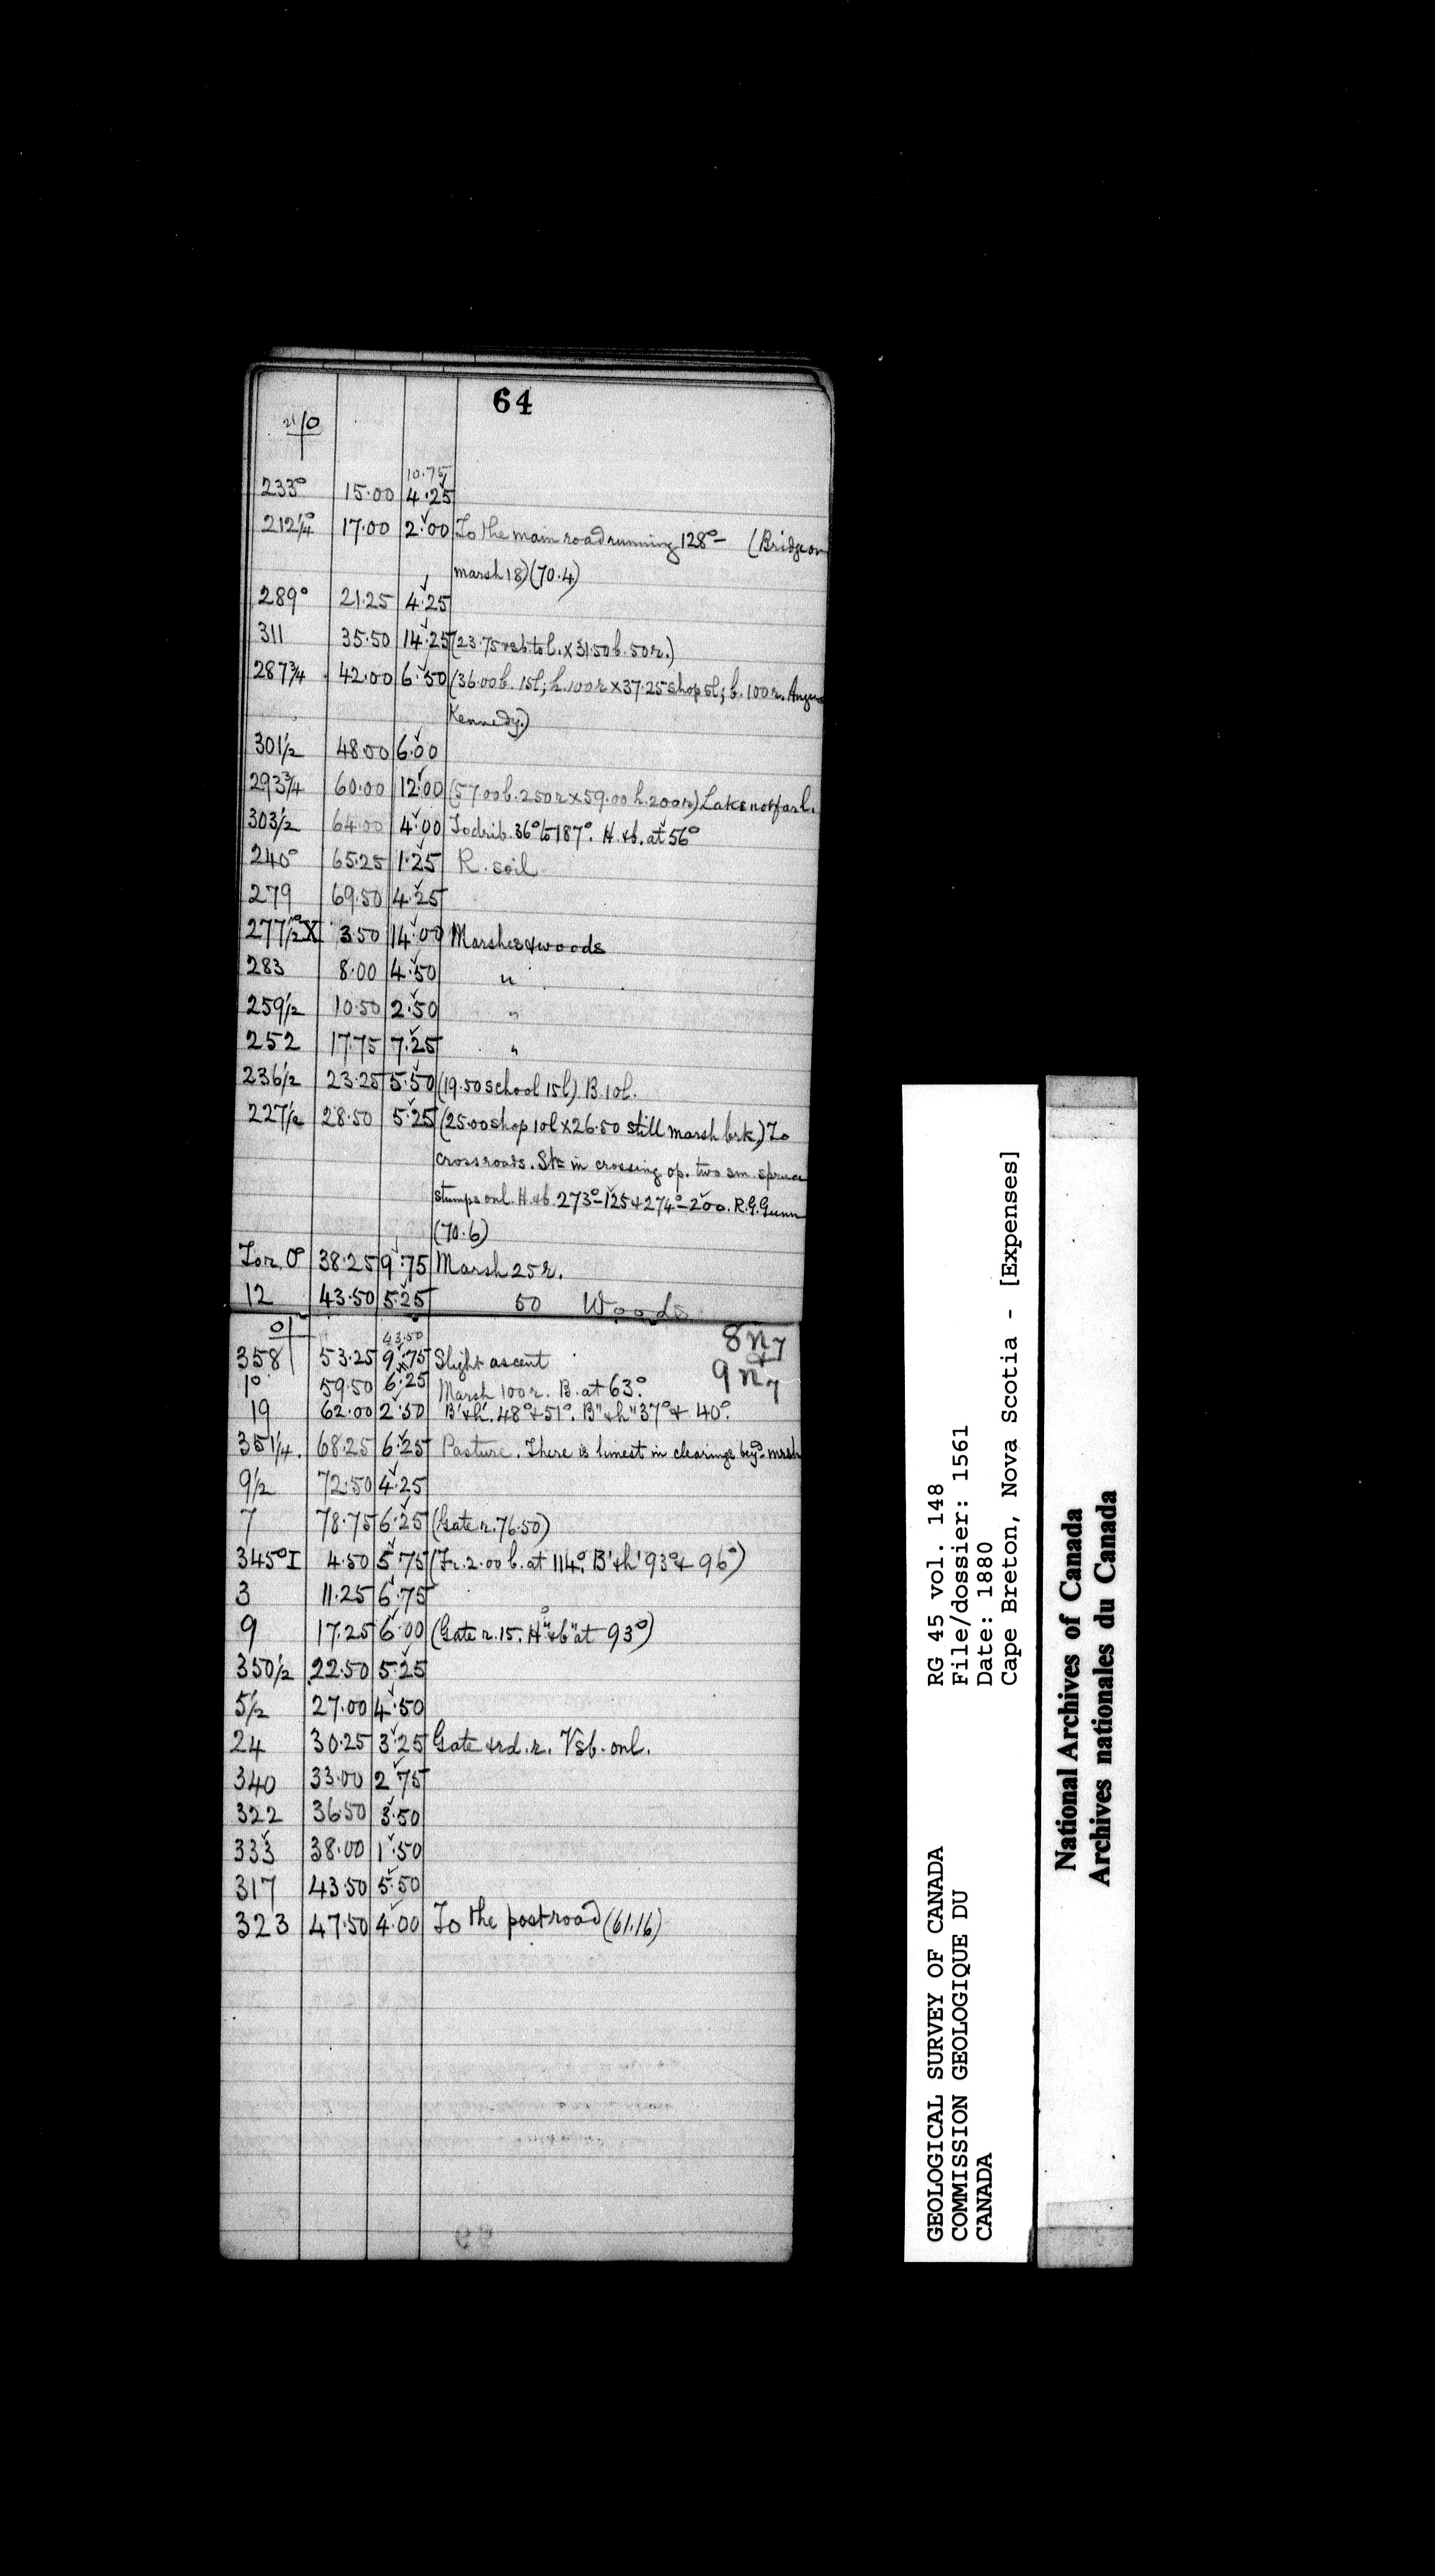 64
21/0
10.75
233° 15.00 4.25
212¼° 17.00 2.00 To the main road running 128°– (Bridge on
marsh 18) (70.4)
289° 21.25 4.25
311 35.50 14.25 (23.75 to l. X 31.50 b. 50 r.)
287¾ 42.00 6.50 (36.00 b. 15 l; h. 100 r X 37.25 shop 5l; b. 100 r. Angus
Kennedy.)
301½ 48.00 6.00
293¾ 60.00 12.00 (57.00 b. 250 r X 59.00 h. 200 r) Lake not far l.
303½ 64.00 4.00 To drib. 36° to 187°. H. & b. at 56°
240° 65.25 1.25 R. soil
279 69.50 4.25
277½° X 3.50 14.00 Marshes & woods
283 8.00 4.50 "
259½ 10.50 2.50 "
252 17.75 7.25 "
236½ 23.25 5.50 (19.50 school 15 l) B. 10 l.
227½ 28.50 5.25 (25.00 shop 10 l X 26.50 still marsh brk.) To
crossroads. Stn in crossing op. two sm. spruce
stumps on l. H. & b. 273°–125 & 274°–200. R.G. Gunn
(70.6)
I or 0° 38.25 9.75 Marsh 25 r.
12 43.50 5.25 50 Woods
0 43.50 8 n 7
358 53.25 9.75 Slight ascent &
1° 59.50 6.25 Marsh 100 r. B. at 63°. 9 n 7
19 62.00 2.50 B' & h'. 48° & 51°. B" & h" 37° & 40°.
351¼. 68.25 6.25 Pasture. There is limest in clearings beyd. mrsh
9½ 72.50 4.25
7 78.75 6.25 (Gate r. 76.50)
345° I 4.50 5.75 (Fr. 2.00 b. at 114°. B' & h' 93° & 96°)
3 11.25 6.75
9 17.25 6.00 (Gate r. 15. H" & b" at 93°)
350½ 22.50 5.25
5½ 27.00 4.50
24 30.25 3.25 Gate & rd. r. Vsb. on l.
340 33.00 2.75
322 36.50 3.50
333 38.00 1.50
317 43.50 5.50
323 47.50 4.00 To the post road (61.16)
GEOLOGICAL SURVEY OF CANADA
COMMISSION GEOLOGIQUE DU
CANADA
RG 45 vol. 148
File/dossier: 1561
Date: 1880
Cape Breton, Nova Scotia - [Expenses]
National Archives of Canada
Archives nationales du Canada